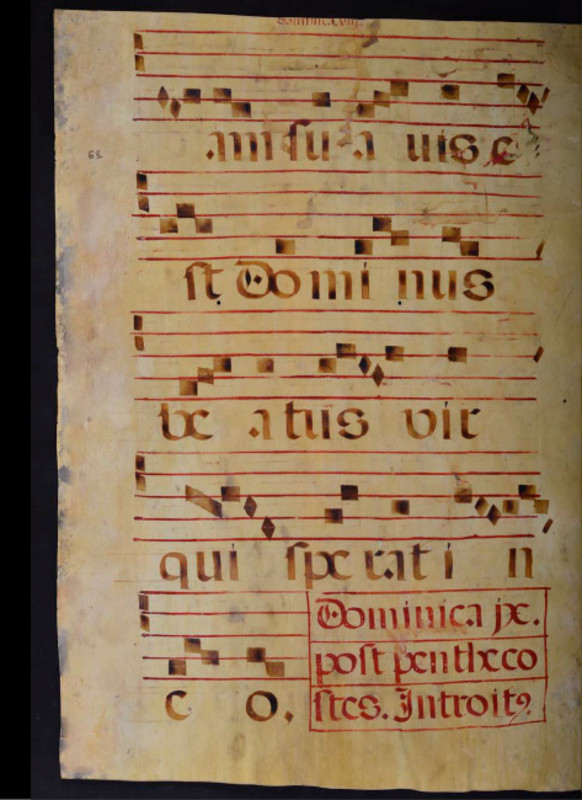 dominica.viij.
.am su a uis e
st Domi nus
be atus vir
qui sperat i n
e o.
Dominica ix.
post pentheco
stes. Introitꝰ.
68